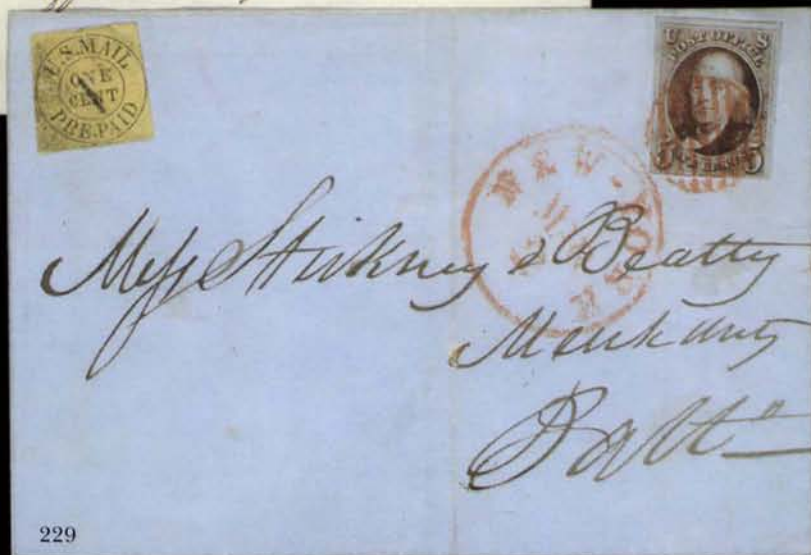 U.S.MAIL
ONE
CENT
PRE-PAID
U S
POST OFFICE
5 5
NEW-YORK
11
Messrs Stickney & Beatty
Merchants
Balto
229